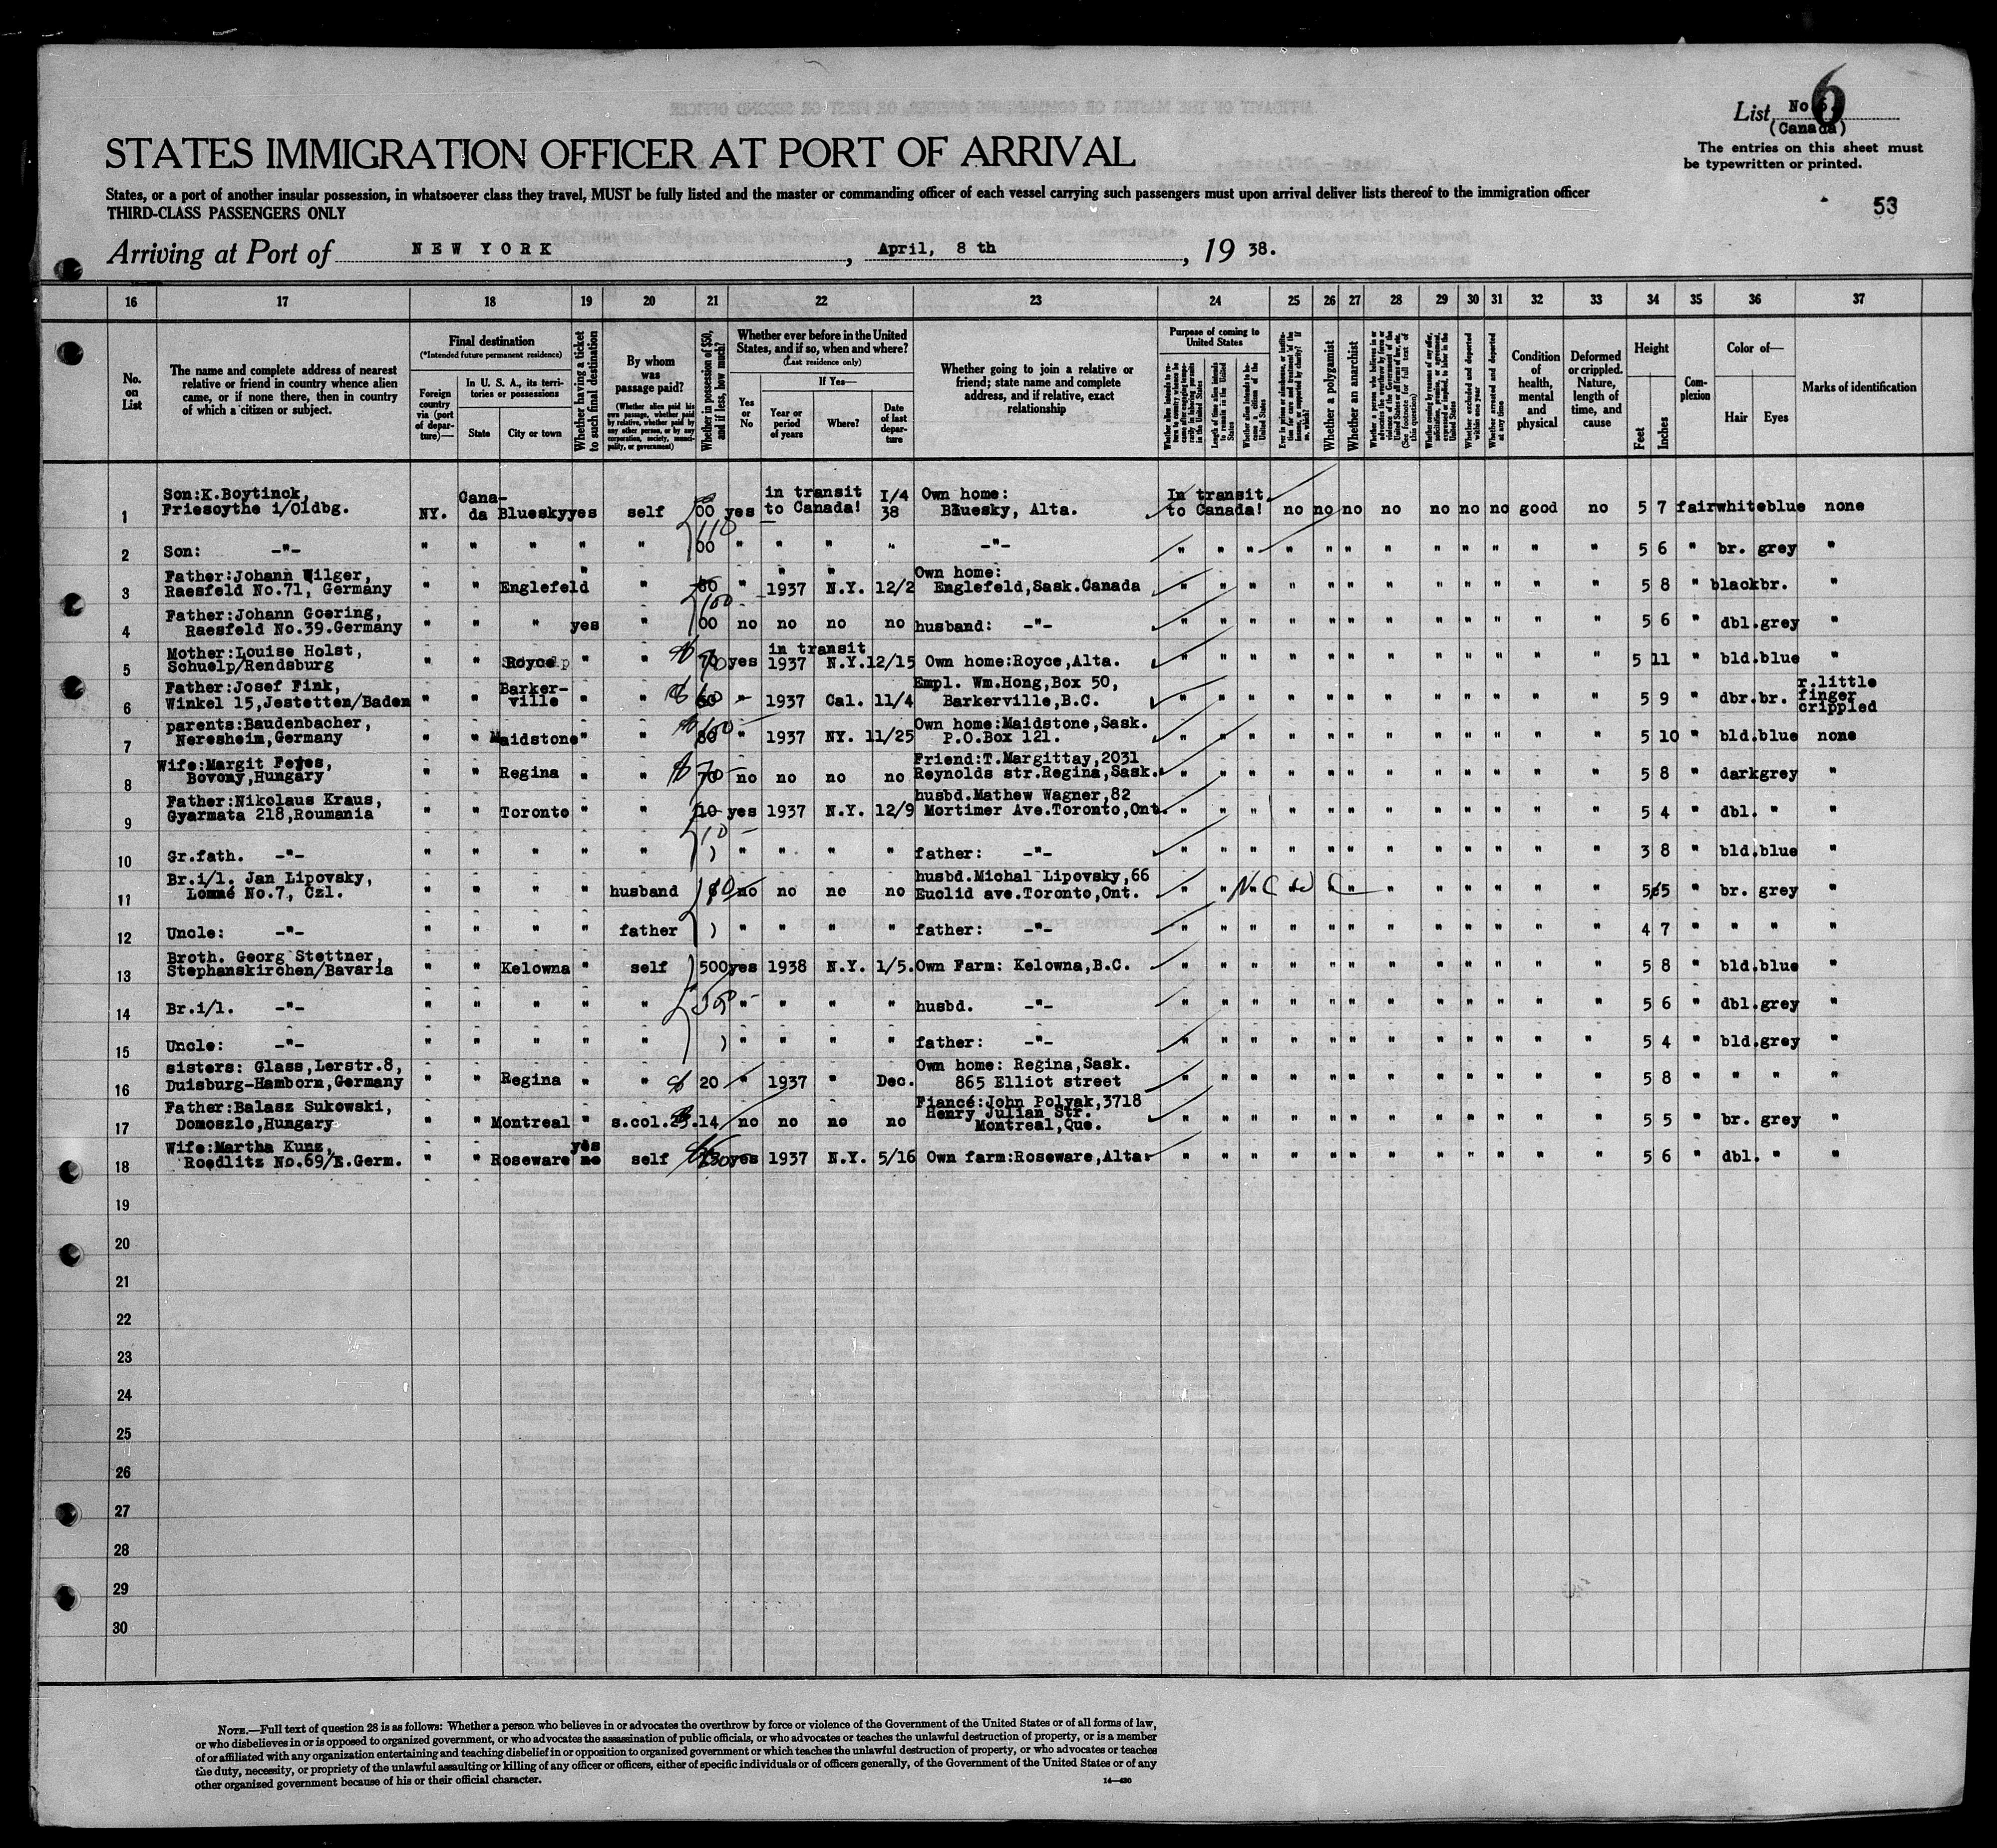 6
List No 6.
(Canada)
The entries on this sheet must
be typewritten or printed.
53
STATES IMMIGRATION OFFICER AT PORT OF ARRIVAL
States, or a port of another insular possession, in whatsoever class they travel, MUST be fully listed and the master or commanding officer of each vessel carrying such passengers must upon arrival deliver lists thereof to the immigration officer
THIRD-CLASS PASSENGERS ONLY
Arriving at Port of NEW YORK, April, 8 th, 19 38.
16 17 18 19 20 21 22 23 24 25 26 27 28 29 30 31 32 33 34 35 36 37
No. on List
The name and complete address of nearest relative or friend in country whence alien came, or if none there, then in country of which a citizen or subject.
Final destination
(*Intended future permanent residence)
Foreign country via (port of departure)—
In U. S. A., its territories or possessions
State
City or town
Whether having a ticket to such final destination
By whom was passage paid?
(Whether alien paid his own passage, whether paid by relative, whether paid by any other person, or by any corporation, society, municipality, or government)
Whether in possession of $50, and if less, how much?
Whether ever before in the United States, and if so, when and where?
(Last residence only)
Yes or No
If Yes—
Year or period of years
Where?
Date of last departure
Whether going to join a relative or friend; state name and complete address, and if relative, exact relationship
Purpose of coming to United States
Length of time alien intends to remain in the United States
Whether alien intends to become a citizen of the United States
Whether a polygamist
Whether an anarchist
Whether excluded and deported within one year
Whether arrested and deported at any time
Condition of health, mental and physical
Deformed or crippled. Nature, length of time, and cause
Height
Feet
Inches
Complexion
Color of—
Hair
Eyes
Marks of identification
1 Son:K.Boytinck, Friesoythe i/Oldbg. NY. Canada Bluesky yes self 00 yes in transit to Canada! 1/4 38 Own home: Bluesky, Alta. In transit to Canada! no no no no no no no good no 5 7 fair white blue none
2 Son: -"- " " " " " 00 " " " " -"- " " " " " " " " " " " " 5 6 " br. grey "
3 Father:Johann Wilger, Raesfeld No.71, Germany " " Englefeld " " " 1937 N.Y. 12/2 Own home: Englefeld,Sask.Canada " " " " " " " " " " " " 5 8 " black br. "
4 Father:Johann Goering, Raesfeld No.39.Germany " " " yes " 100 00 no no no no husband: -"- " " " " " " " " " " " " 5 6 " dbl. grey "
5 Mother:Louise Holst, Schuelp/Rendsburg " " Royce " " 70 yes in transit 1937 N.Y. 12/15 Own home:Royce,Alta. " " " " " " " " " " " " 5 11 " bld. blue "
6 Father:Josef Fink, Winkel 15,Jestetten/Baden " " Barkerville " " 60 " 1937 Cal. 11/4 Empl. Wm.Hong,Box 50, Barkerville,B.C. " " " " " " " " " " " " 5 9 " dbr. br. r.little finger crippled
7 parents:Baudenbacher, Neresheim,Germany " " Maidstone " " 80 " 1937 NY. 11/25 Own home:Maidstone,Sask. P.O.Box 121. " " " " " " " " " " " " 5 10 " bld. blue none
8 Wife:Margit Fejes, Bovony,Hungary " " Regina " " 70 no no no no Friend:T.Margittay,2031 Reynolds str.Regina,Sask. " " " " " " " " " " " " 5 8 " dark grey "
9 Father:Nikolaus Kraus, Gyarmata 218,Roumania " " Toronto " " 10 yes 1937 N.Y. 12/9 husbd.Mathew Wagner,82 Mortimer Ave.Toronto,Ont. " " " " " " " " " " " " 5 4 " dbl. " "
10 Gr.fath. -"- " " " " " 10 ) " " " " father: -"- " " " " " " " " " " " " 3 8 " bld. blue "
11 Br.i/l. Jan Lipovsky, Lomné No.7, Czl. " " " " husband no no no no husbd.Michal Lipovsky,66 Euclid ave.Toronto,Ont. " " " " " " " " " " " " 5 5 " br. grey "
12 Uncle: -"- " " " " father ) " " " " father: -"- " " " " " " " " " " " " 4 7 " " " "
13 Broth. Georg Stettner, Stephanskirchen/Bavaria " " Kelowna " self 500 yes 1938 N.Y. 1/5. Own Farm: Kelowna,B.C. " " " " " " " " " " " " 5 8 " bld. blue "
14 Br.i/l. -"- " " " " " " " " " husbd. -"- " " " " " " " " " " " " 5 6 " dbl. grey "
15 Uncle: -"- " " " " " ) " " " " father: -"- " " " " " " " " " " " " 5 4 " bld. grey "
16 sisters: Glass,Lerstr.8, Duisburg-Hamborn,Germany " " Regina " " 20 " 1937 " Dec. Own home: Regina,Sask. 865 Elliot street " " " " " " " " " " " " 5 8 " " " "
17 Father:Balasz Sukowski, Domoszlo,Hungary " " Montreal " s.col. 14 no no no no Fiancé:John Polyak,3718 Henry Julian Str. Montreal,Que. " " " " " " " " " " " " 5 5 " br. grey "
18 Wife:Martha Kunz, Roedlitz No.69/E.Germ. " " Roseware yes no self yes 1937 N.Y. 5/16 Own farm:Roseware,Alta. " " " " " " " " " " " " 5 6 " dbl. " "
19
20
21
22
23
24
25
26
27
28
29
30
NOTE.—Full text of question 28 is as follows: Whether a person who believes in or advocates the overthrow by force or violence of the Government of the United States or of all forms of law,
or who disbelieves in or is opposed to organized government, or who advocates the assassination of public officials, or who advocates or teaches the unlawful destruction of property, or is a member
of or affiliated with any organization entertaining and teaching disbelief in or opposition to organized government or which teaches the unlawful destruction of property, or who advocates or teaches
the duty, necessity, or propriety of the unlawful assaulting or killing of any officer or officers, either of specific individuals or of officers generally, of the Government of the United States or of any
other organized government because of his or their official character.
14—430